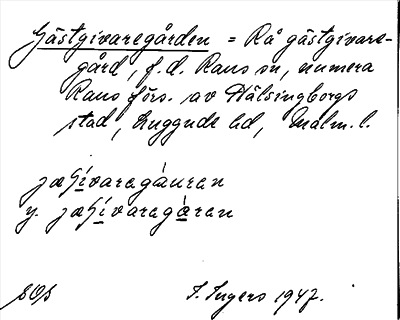 Gästgivaregården = Rå gästgivare-
gård, f.d. Raus sn, numera
Raus förs. av Hälsingborgs
stad, Luggude hd, Malm. l.
jæʃívaragàuran
y. jæʃívaragàran
SOs
S. Ingers 1947.